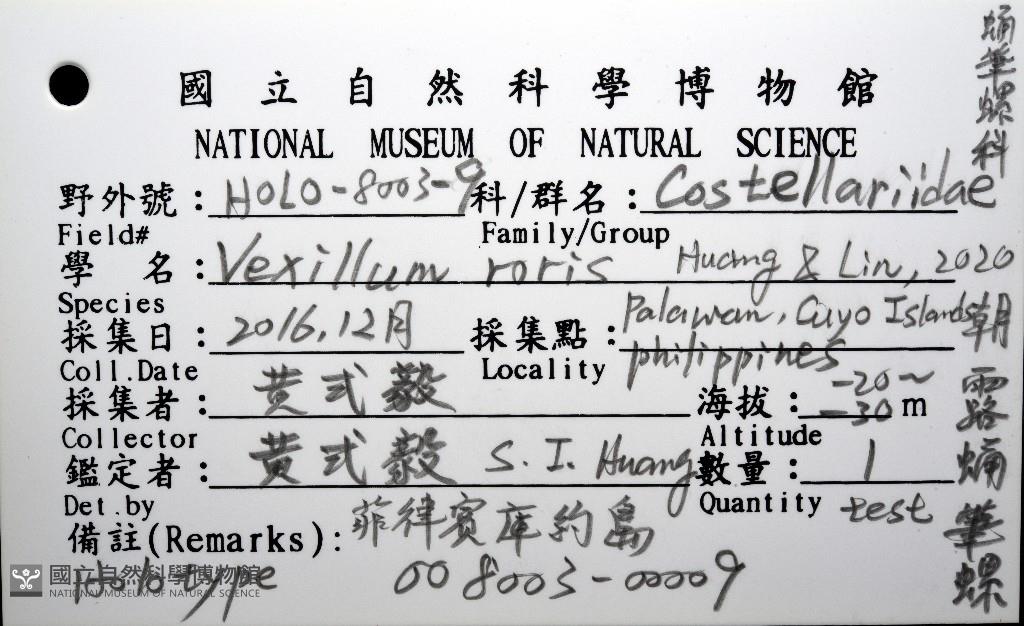 國立自然科學博物館
NATIONAL MUSEUM OF NATURAL SCIENCE
蛹筆螺科
野外號：HOLO-8003-9 科/群名：Costellariidae
Field# Family/Group
學名：Vexillum roris Huang & Lin, 2020
Species
採集日：2016,12月 採集點：Palawan, Cuyo Islands
philippines
Coll.Date Locality
採集者：黄弍毅 海拔：-20~
-30m
Collector Altitude
鑑定者：黄弍毅 S. I. Huang 數量：1
Det.by Quantity test
備註(Remarks)：菲律賓庫約島
Holotype 008003-00009
朝露蛹筆螺
國立自然科學博物館
NATIONAL MUSEUM OF NATURAL SCIENCE